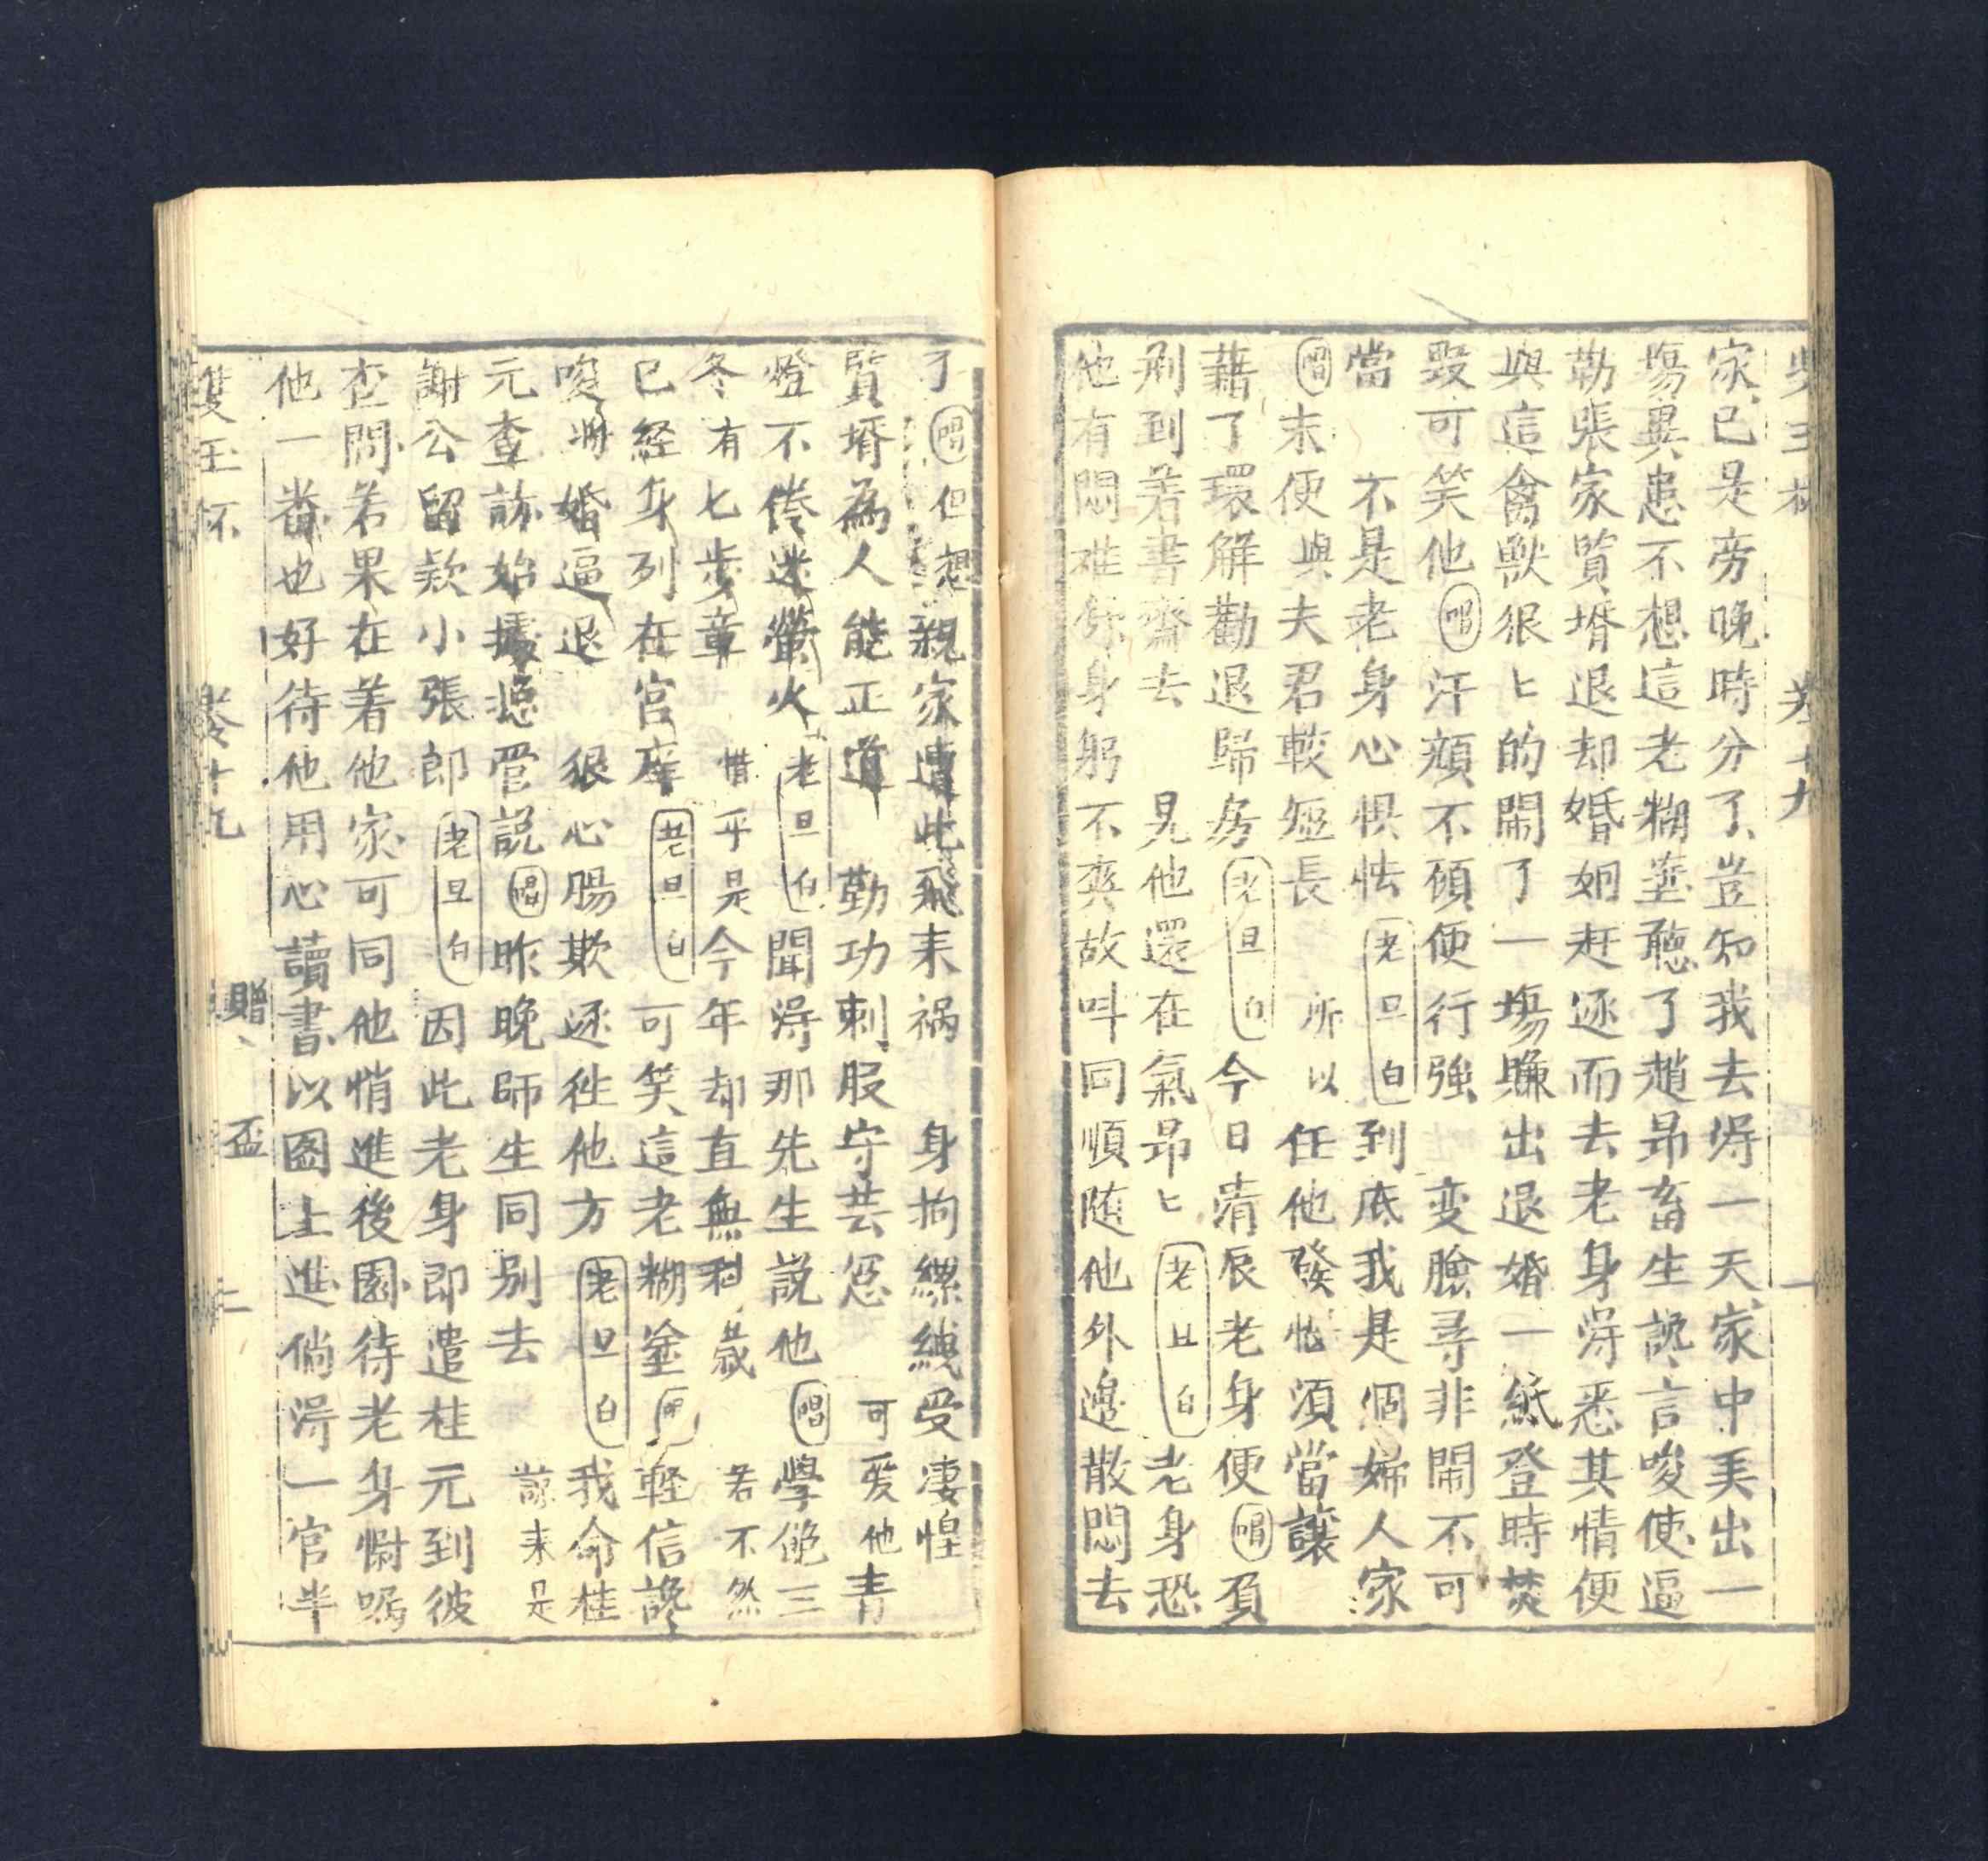 家已是旁晚時分了豈知我去得一天家中美出一
塲異患不想這老糊塗聽了趙昂畜生讒言唆使逼
勒張家賢壻退却婚姻赶逐而去老身淂悉其情便
與這禽獸狠〻的閙了一塲賺出退婚一紙登時焚
毀可笑他唱汗顔不顧便行強　变臉尋非閙不可
當　不是老身心惧怯老旦白到底我是個婦人家
唱末便與夫君較短長　所以　任他發怒須當讓
藉了環解勸退歸房老旦白今日清辰老身便唱頁
刷到着書齋去　見他還在氣昂〻老旦白老身恐
他有悶难舒身躬不爽故呌同順随他外邊散悶去
了唱但想親家遭此飛耒禍　身拘縲絏受凄惶
賢壻為人能正道　勤功刺股守芸窓　可爱他青
燈不倦迷螢火老旦白聞淂那先生説他唱學飽三
冬有七步章　惜乎是今年却直無科歲　若不然
已経身列在宫庠老旦白可笑這老糊塗唱輕信讒
唆將婚逼退　狠心腸欺逐徃他方老旦白我命桂
元查訪始據總管説唱昨晚師生同别去　諒耒是
謝公留欵小張郎老旦白因此老身即遣桂元到彼
查問若果在着他家可同他悄進後園待老身慰嘱
他一番也好待他用心讀書以圖上進倘淂一官半
雙玉杯　卷十九　贈盃　二